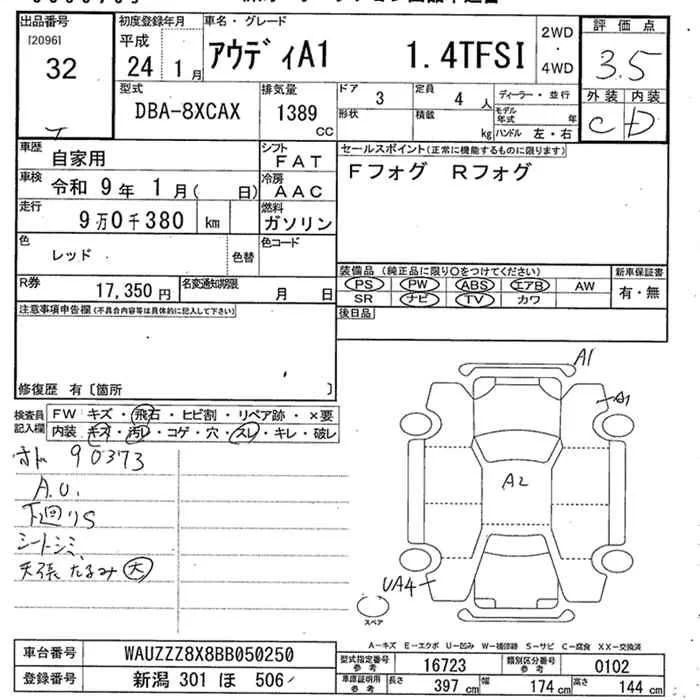 出品番号
[2096]
32
初度登録年月
平成
24 1月
車名・グレード
アウディA1 1.4TFSI
2WD
・
4WD
評価点
3.5
外装 内装
C D
型式
DBA-8XCAX
排気量
1389 CC
ドア 3
定員 4 人
ディーラー・並行
形状
積載 kg
モデル年式 年
ハンドル 左・右
車歴 自家用
シフト FAT
セールスポイント(正常に機能するものに限ります)
Fフォグ Rフォグ
車検 令和 9年 1月( 日)
冷房 AAC
走行 9万0千380 km
燃料 ガソリン
色 レッド 色替
色コード
R券 17,350円
名変通知期限 月 日
装備品(純正品に限り○をつけてください)
PS PW ABS エアB AW
SR ナビ TV カワ
新車保証書
有・無
後日品
注意事項申告欄(不具合内容等は具体的に記入して下さい)
修復歴 有〔箇所 〕
検査員記入欄
FW キズ・飛石・ヒビ割・リペア跡・×要
内装 キズ・汚レ・コゲ・穴・スレ・キレ・破レ
90373
A.U.
下廻りS
シートシミ
天張たるみ大
A1
A1
A2
UA4
スペア
A-キズ E-エクボ U-凹み W-補修跡 S-サビ C-腐食 XX-交換済
車台番号 WAUZZZ8X8BB050250
登録番号 新潟 301 ほ 506
型式指定番号参考 16723
類別区分番号参考 0102
車庫証明用参考 長さ 397 cm 幅 174 cm 高さ 144 cm